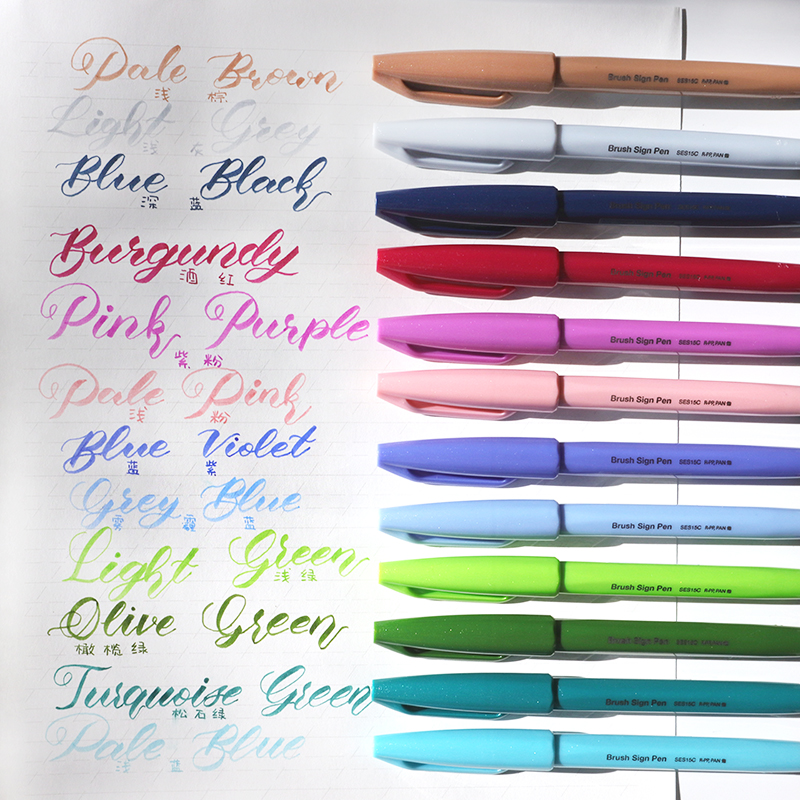 Pale Brown
浅 棕
Brush Sign Pen SES15C
Light Grey
浅 灰
Brush Sign Pen SES15C
Blue Black
深 蓝
Burgundy
酒 红
Brush Sign Pen
Pink Purple
紫 粉
Brush Sign Pen SES15C
Pale Pink
浅 粉
Brush Sign Pen SES15C
Blue Violet
蓝 紫
Brush Sign Pen SES15C
Grey Blue
雾 霾 蓝
Brush Sign Pen SES15C
Light Green
浅 绿
Brush Sign Pen SES15C
Olive Green
橄 榄 绿
Brush Sign Pen SES15C
Turquoise Green
松 石 绿
Brush Sign Pen SES15C
Pale Blue
浅 蓝
Brush Sign Pen SES15C